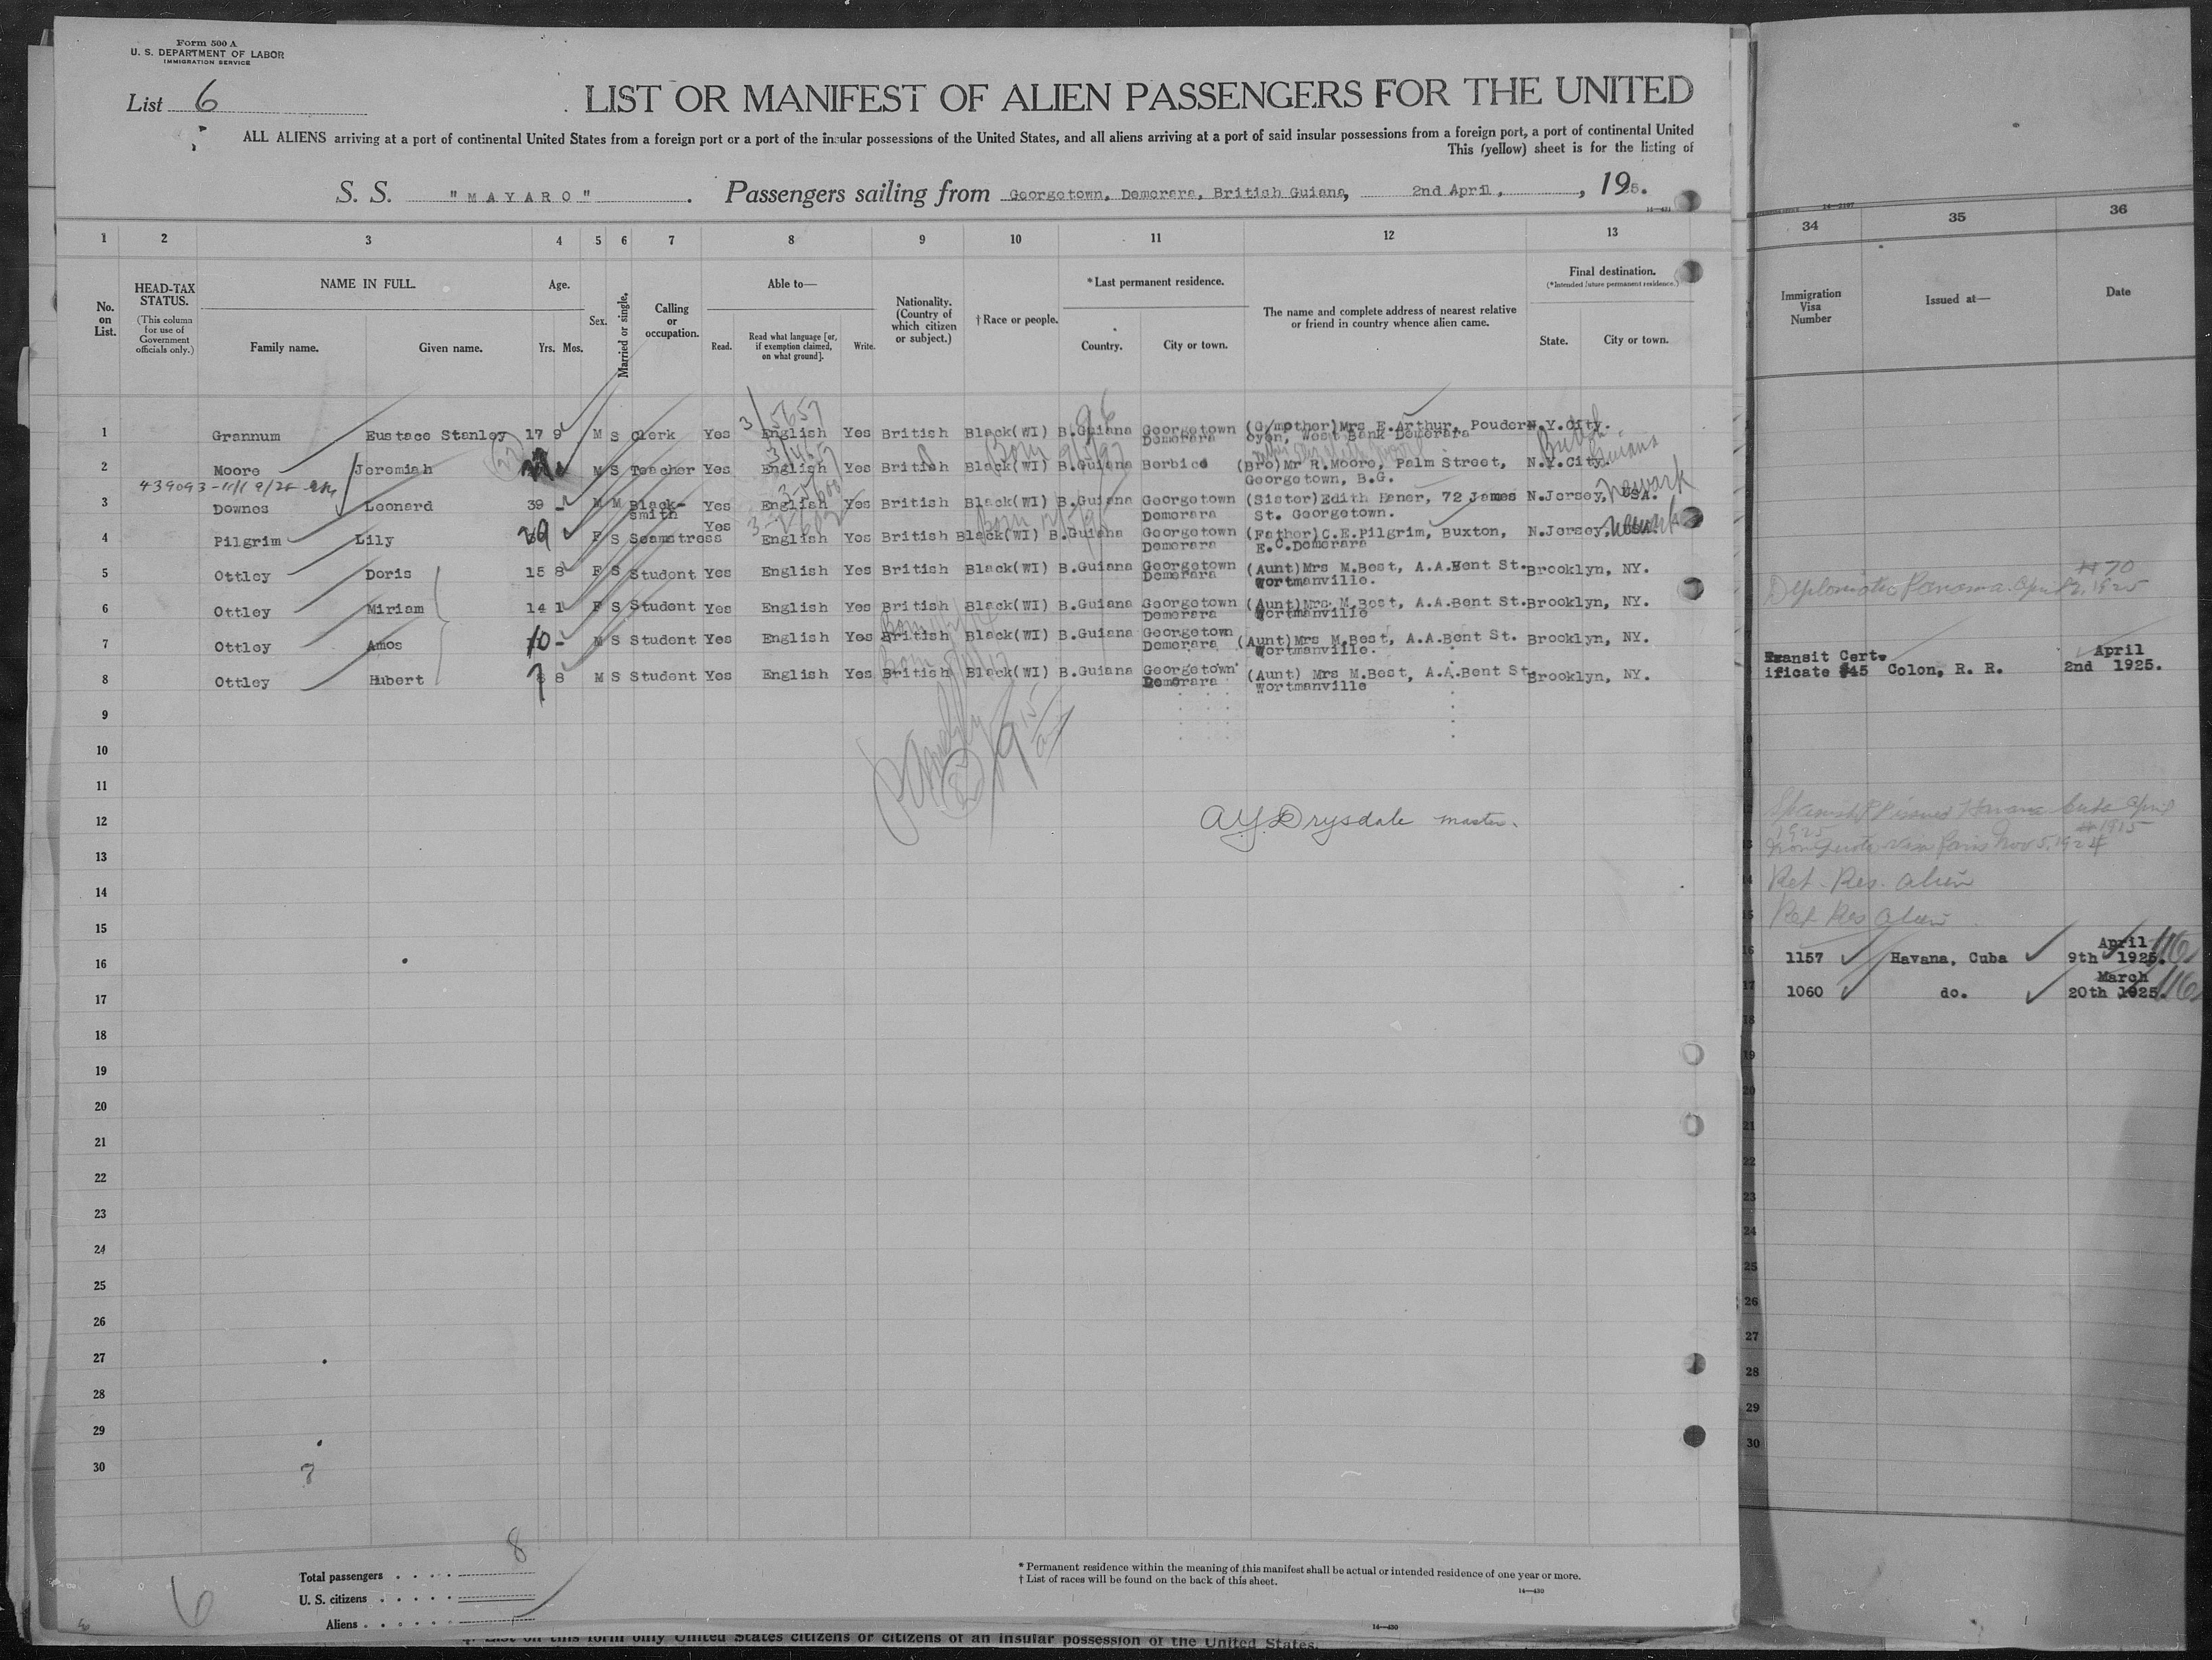 Form 500 A
U. S. DEPARTMENT OF LABOR
IMMIGRATION SERVICE
List 6
LIST OR MANIFEST OF ALIEN PASSENGERS FOR THE UNITED
ALL ALIENS arriving at a port of continental United States from a foreign port or a port of the insular possessions of the United States, and all aliens arriving at a port of said insular possessions from a foreign port, a port of continental United
This (yellow) sheet is for the listing of
S. S. "MAYARO". Passengers sailing from Georgetown, Demerara, British Guiana, 2nd April, , 1925.
1 2 3 4 5 6 7 8 9 10 11 12 13
No. on List.
HEAD-TAX STATUS.
(This column for use of Government officials only.)
NAME IN FULL.
Family name. Given name.
Age.
Yrs. Mos.
Sex.
Married or single.
Calling or occupation.
Able to—
Read. Read what language [or, if exemption claimed, on what ground]. Write.
Nationality. (Country of which citizen or subject.)
† Race or people.
* Last permanent residence.
Country. City or town.
The name and complete address of nearest relative or friend in country whence alien came.
Final destination.
(* Intended future permanent residence.)
State. City or town.
1 Grannum Eustace Stanley 17 9 M S Clerk Yes English Yes British Black(WI) B.Guiana Georgetown Demerara (G/mother)Mrs E.Arthur, Pouderoyen, West Bank Demerara N.Y.City.
2 Moore Jeremiah M S Teacher Yes English Yes British Black(WI) B.Guiana Berbice (Bro)Mr R.Moore, Palm Street, Georgetown, B.G. N.Y.City.
British Guiana
3 Downes Leonard 39 - M M Black-smith Yes English Yes British Black(WI) B.Guiana Georgetown Demerara (Sister)Edith Hener, 72 James St. Georgetown. N.Jersey, USA.
Newark
4 Pilgrim Lily 29 F S Seamstress Yes English Yes British Black(WI) B.Guiana Georgetown Demerara (Father)C.E.Pilgrim, Buxton, E.C.Demerara N.Jersey,
Newark
5 Ottley Doris 15 8 F S Student Yes English Yes British Black(WI) B.Guiana Georgetown Demerara (Aunt)Mrs M.Best, A.A.Bent St. Wortmanville. Brooklyn, NY.
6 Ottley Miriam 14 1 F S Student Yes English Yes British Black(WI) B.Guiana Georgetown Demerara (Aunt)Mrs M.Best, A.A.Bent St. Wortmanville Brooklyn, NY.
7 Ottley Amos 10 - M S Student Yes English Yes British Black(WI) B.Guiana Georgetown Demerara (Aunt)Mrs M.Best, A.A.Bent St. Wortmanville. Brooklyn, NY.
8 Ottley Hubert 7 8 M S Student Yes English Yes British Black(WI) B.Guiana Georgetown Demerara (Aunt) Mrs M.Best, A.A.Bent St. Wortmanville Brooklyn, NY.
9
10
11
12
A.Y. Drysdale master.
13
14
15
16
17
18
19
20
21
22
23
24
25
26
27
28
29
30
8
Total passengers
U. S. citizens
Aliens
6
* Permanent residence within the meaning of this manifest shall be actual or intended residence of one year or more.
† List of races will be found on the back of this sheet.
14—430
14—430
List on this form only United States citizens or citizens of an insular possession of the United States.
34 35 36
Immigration Visa Number
Issued at—
Date
#70
Diplomatic Panama April 2, 1925
Transit Certificate #45 Colon, R. R. April 2nd 1925.
Ret. Res. alien
Ret Res alien
1157 Havana, Cuba April 9th 1925.
1060 do. March 20th 1925.